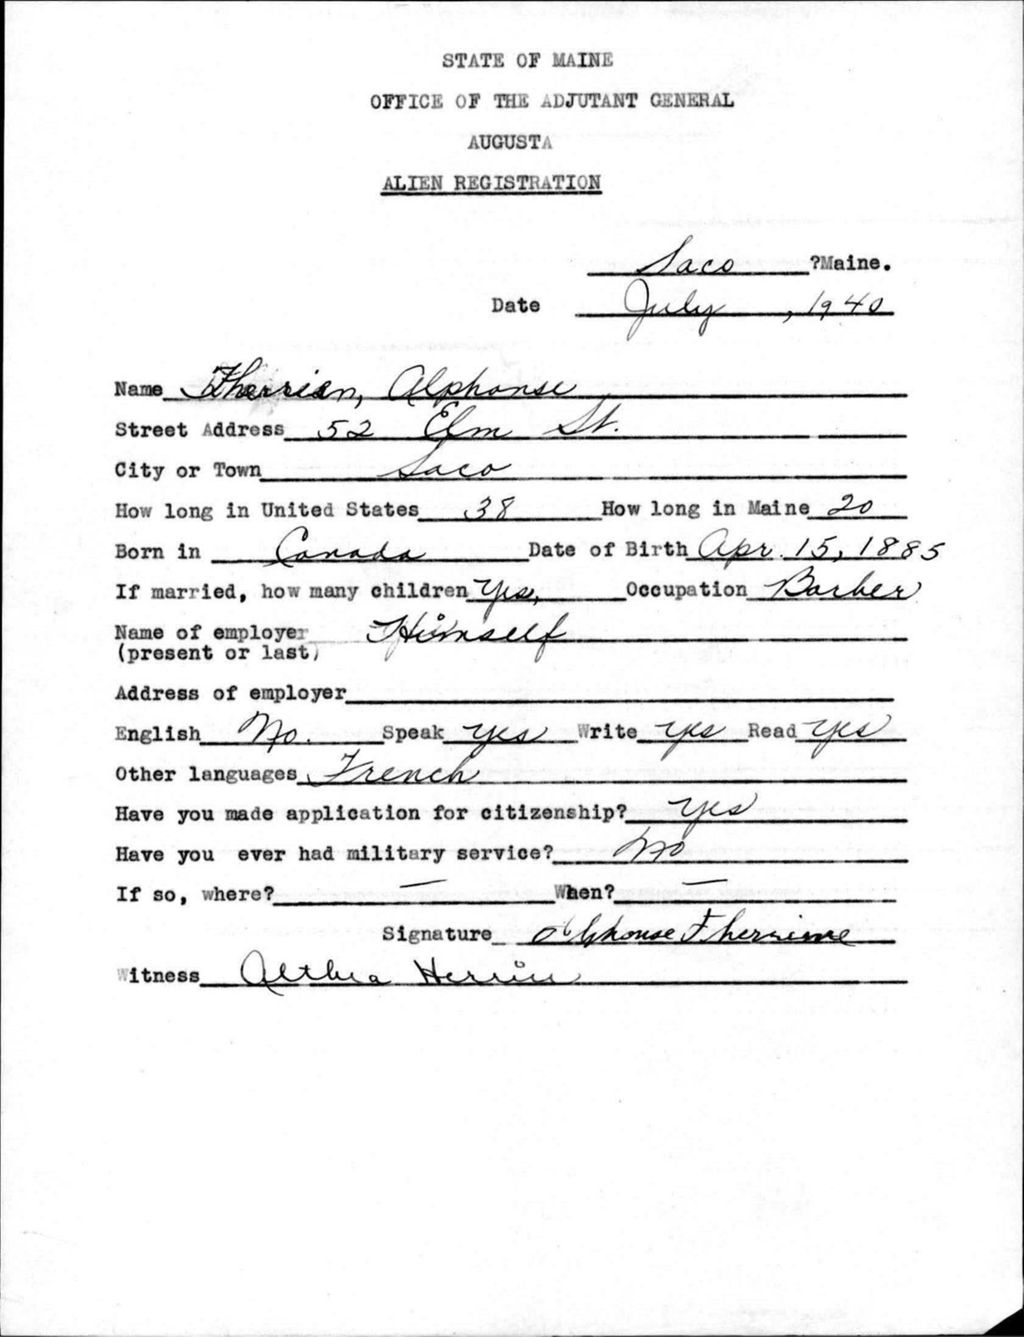 STATE OF MAINE
OFFICE OF THE ADJUTANT GENERAL
AUGUSTA
ALIEN REGISTRATION
Saco ?Maine.
Date July , 1940
Name Therrien, Alphonse
Street Address 52 Elm St.
City or Town Saco
How long in United States 38 How long in Maine 20
Born in Canada Date of Birth Apr. 15, 1885
If married, how many children Yes, Occupation Barber
Name of employer Himself
(present or last)
Address of employer
English No. Speak Yes Write Yes Read Yes
Other languages French
Have you made application for citizenship? Yes
Have you ever had military service? No
If so, where? — When? —
Signature Alphonse Therriene
Witness Althea Herrin